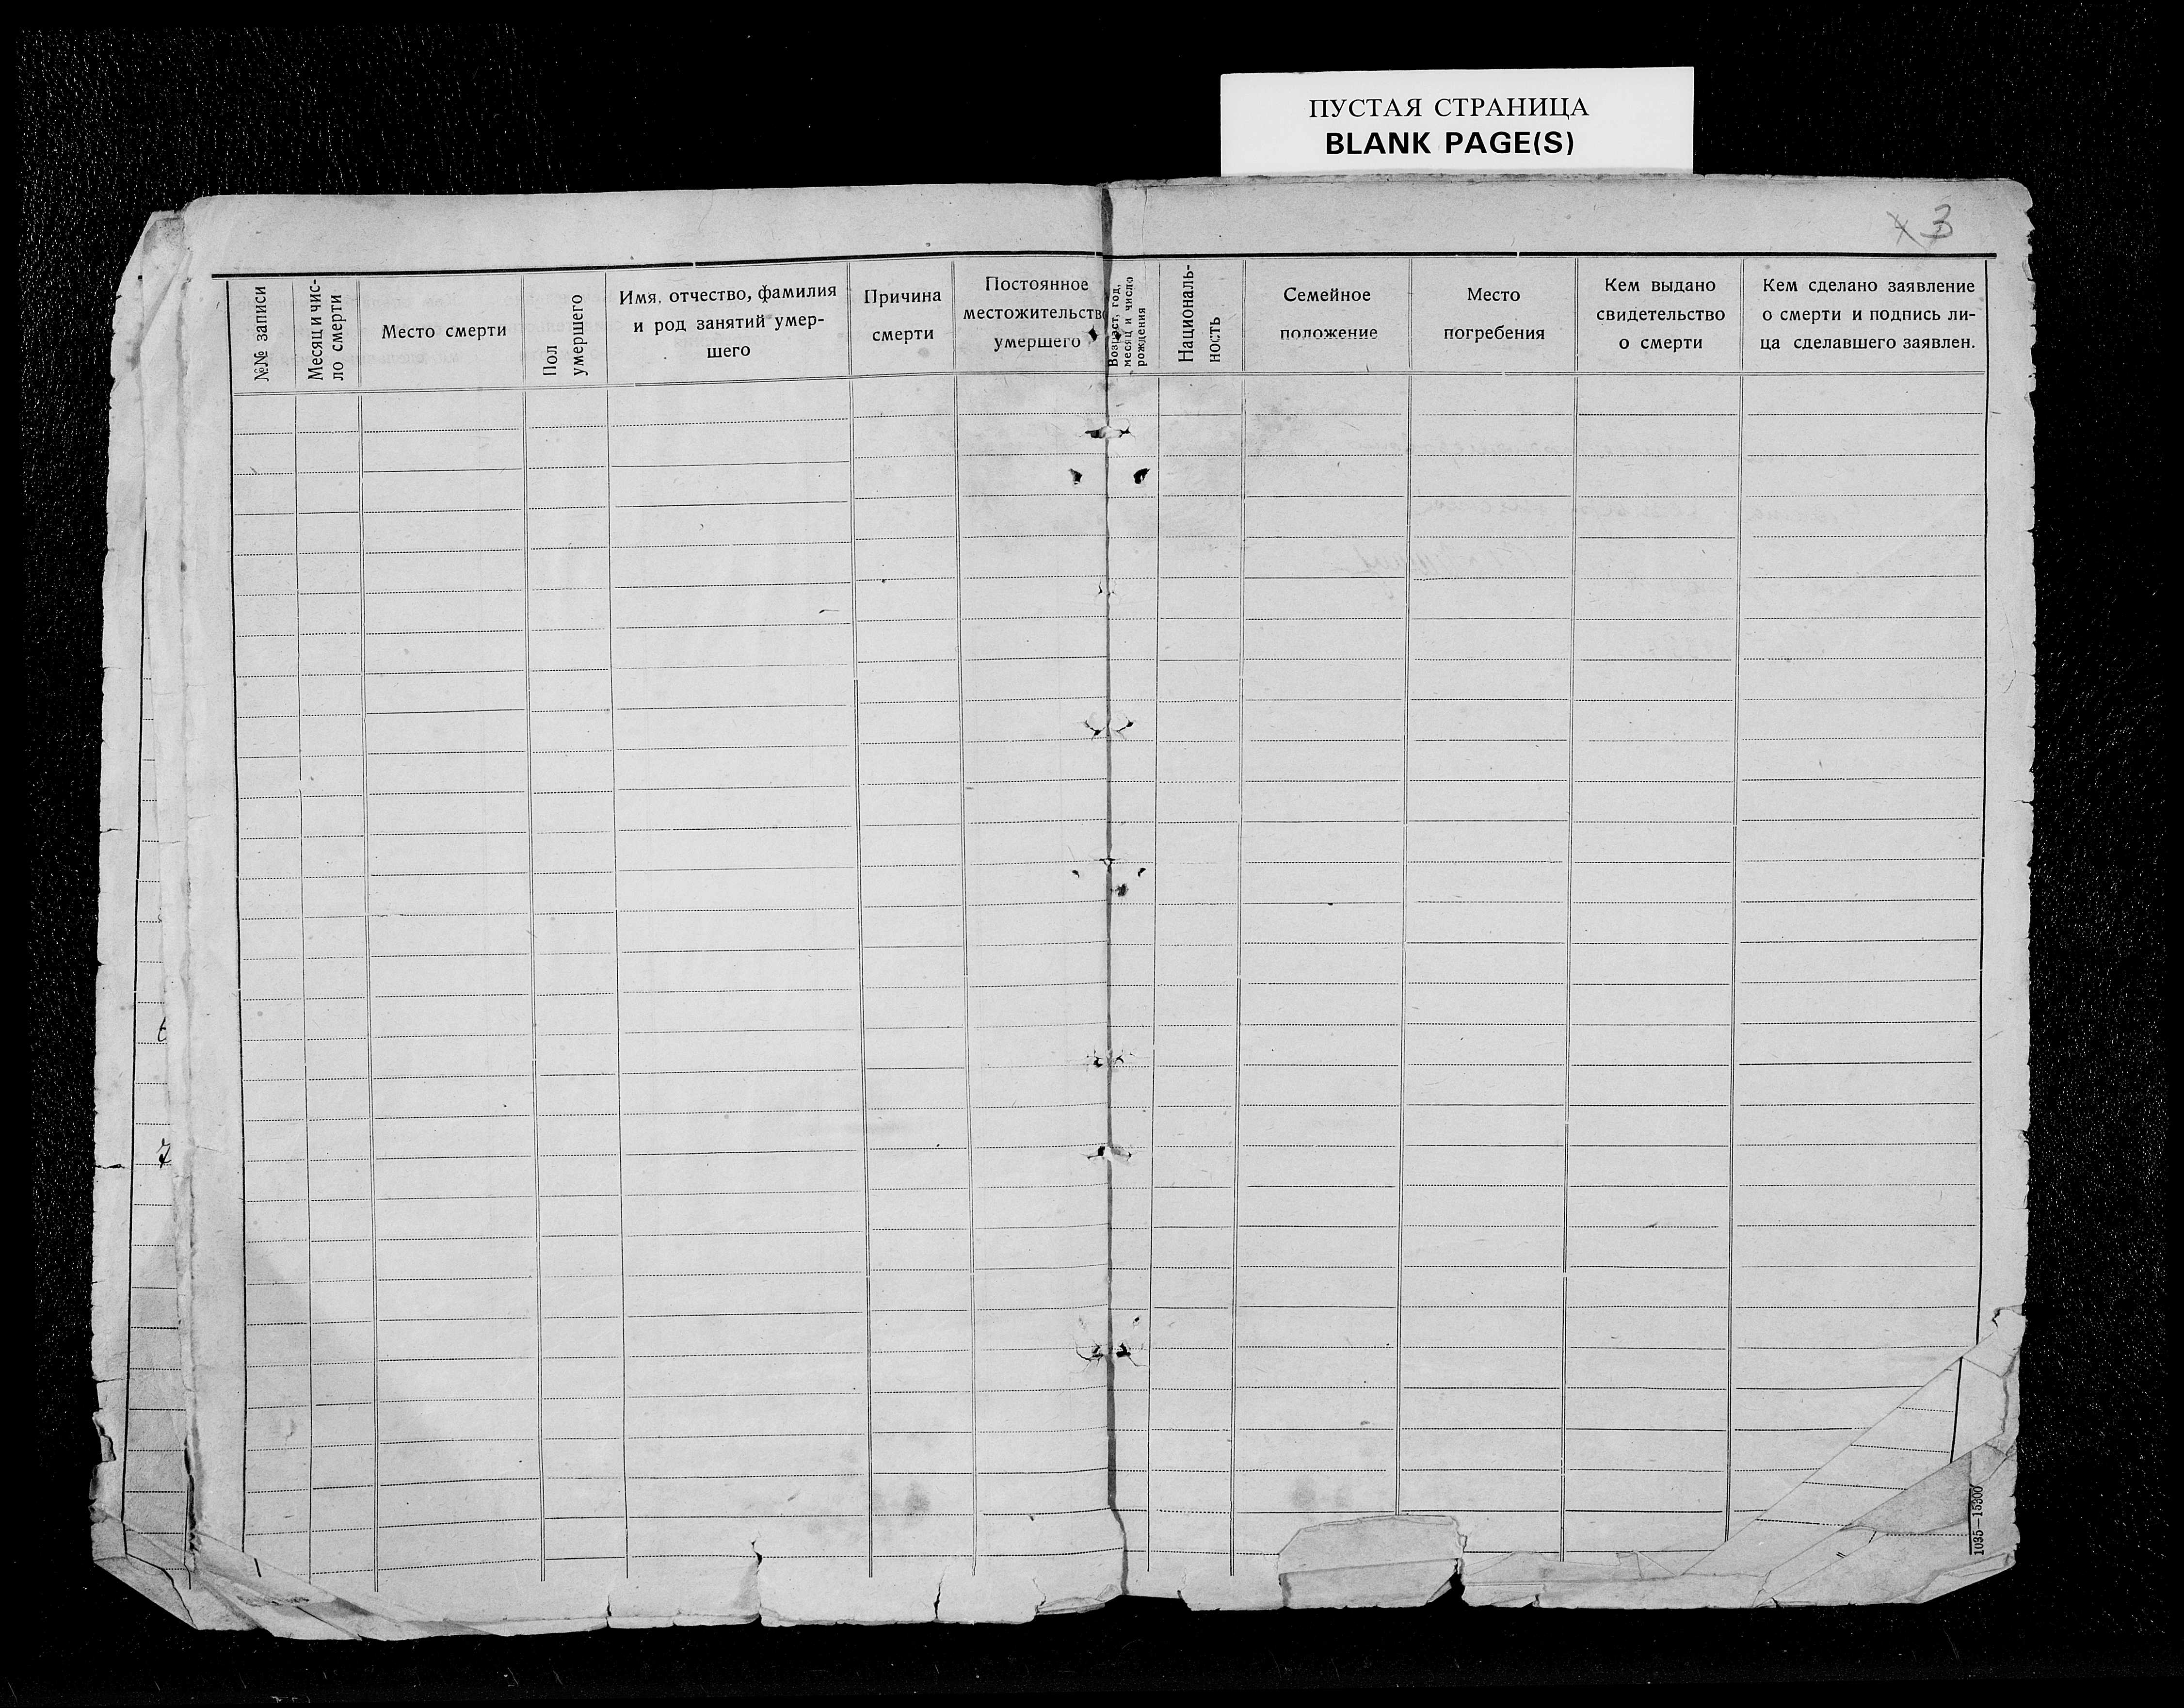 ПУСТАЯ СТРАНИЦА
BLANK PAGE(S)
3
№№ записи
Месяц и чис-
ло смерти
Место смерти
Пол
умершего
Имя, отчество, фамилия
и род занятий умер-
шего
Причина
смерти
Постоянное
местожительство
умершего
Возраст, год,
месяц и число
рождения
Националь-
ность
Семейное
положение
Место
погребения
Кем выдано
свидетельство
о смерти
Кем сделано заявление
о смерти и подпись ли-
ца сделавшего заявлен.
6
7
1035—15300